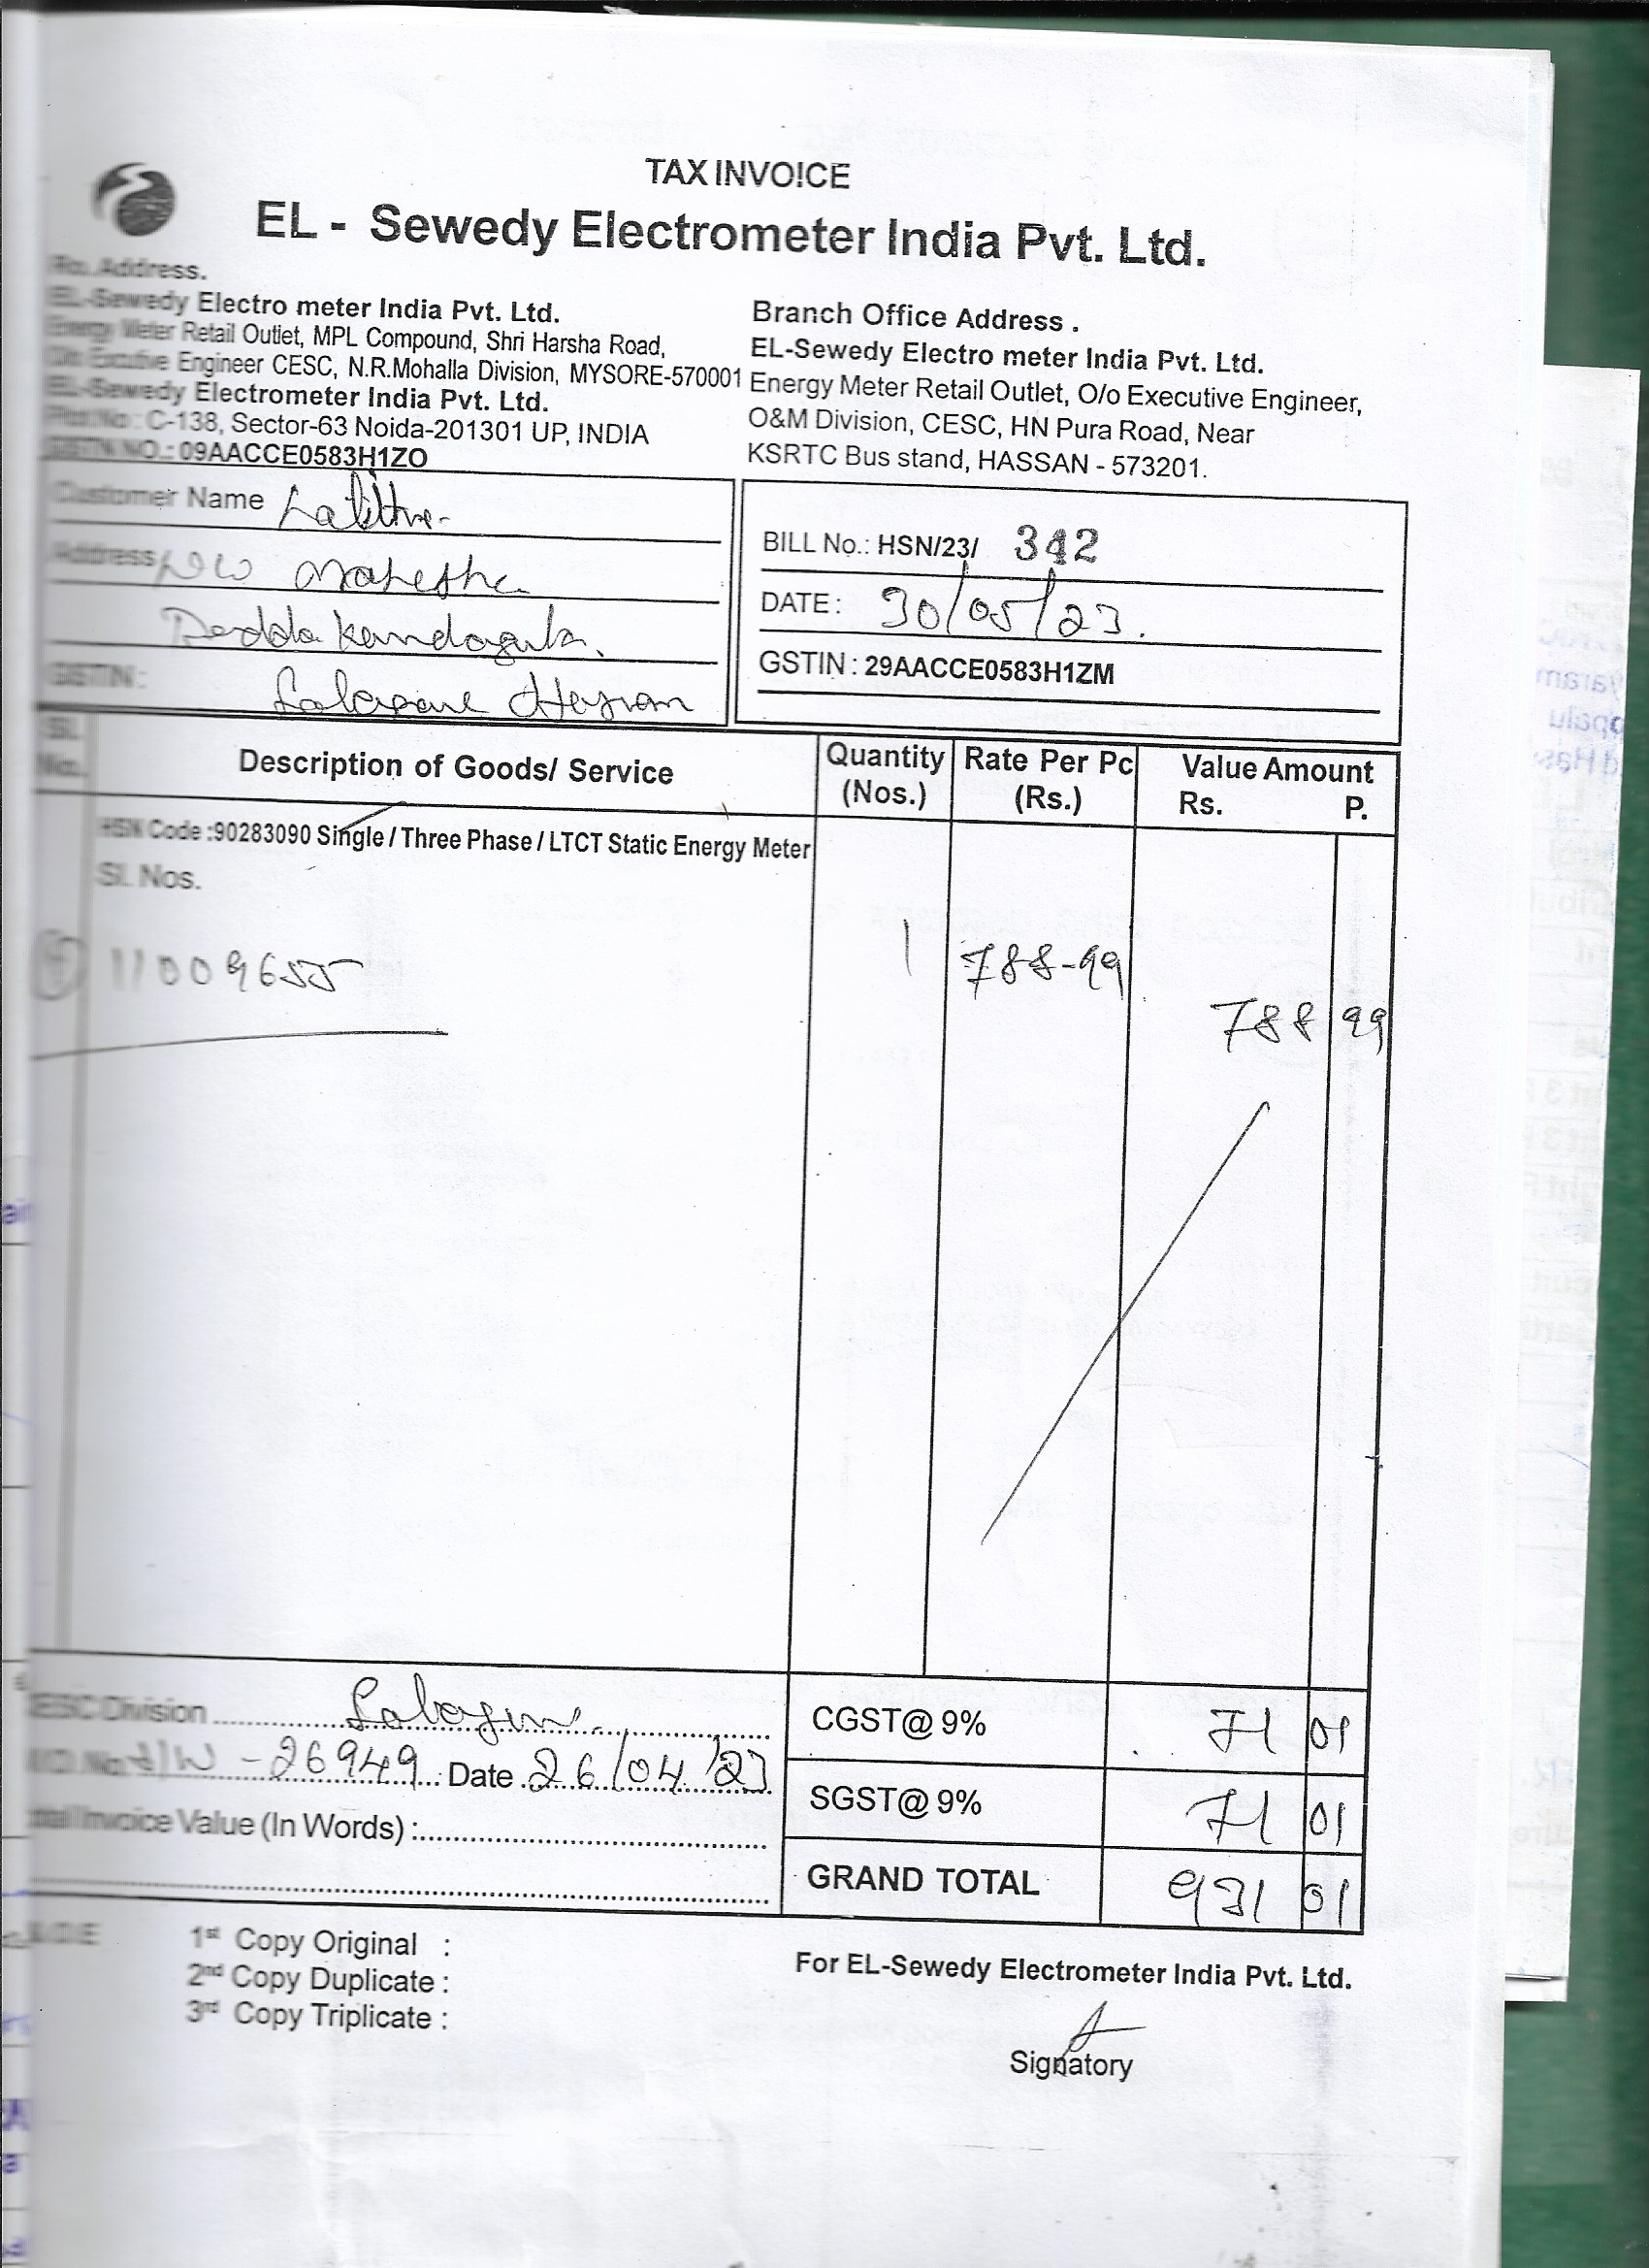 TAX INVOICE
EL - Sewedy Electrometer India Pvt. Ltd.
Ro. Address.
EL-Sewedy Electro meter India Pvt. Ltd.
Energy Meter Retail Outlet, MPL Compound, Shri Harsha Road,
O/o Excutive Engineer CESC, N.R.Mohalla Division, MYSORE-570001
EL-Sewedy Electrometer India Pvt. Ltd.
Plot No : C-138, Sector-63 Noida-201301 UP, INDIA
GSTN NO.: 09AACCE0583H1ZO
Branch Office Address .
EL-Sewedy Electro meter India Pvt. Ltd.
Energy Meter Retail Outlet, O/o Executive Engineer,
O&M Division, CESC, HN Pura Road, Near
KSRTC Bus stand, HASSAN - 573201.
Customer Name Lalitha
Address
GSTIN :
BILL No.: HSN/23/ 342
DATE : 30/05/23.
GSTIN : 29AACCE0583H1ZM
Sl. No.
Description of Goods/ Service
Quantity (Nos.)
Rate Per Pc (Rs.)
Value Amount
Rs. P.
HSN Code :90283090 Single / Three Phase / LTCT Static Energy Meter
Sl. Nos.
11009655 1 788-99
788 99
CESC Division
26949 Date 26/04/23
Total Invoice Value (In Words) :
CGST@ 9% 71 01
SGST@ 9% 71 01
GRAND TOTAL 931 01
1st Copy Original :
2nd Copy Duplicate :
3rd Copy Triplicate :
For EL-Sewedy Electrometer India Pvt. Ltd.
Signatory